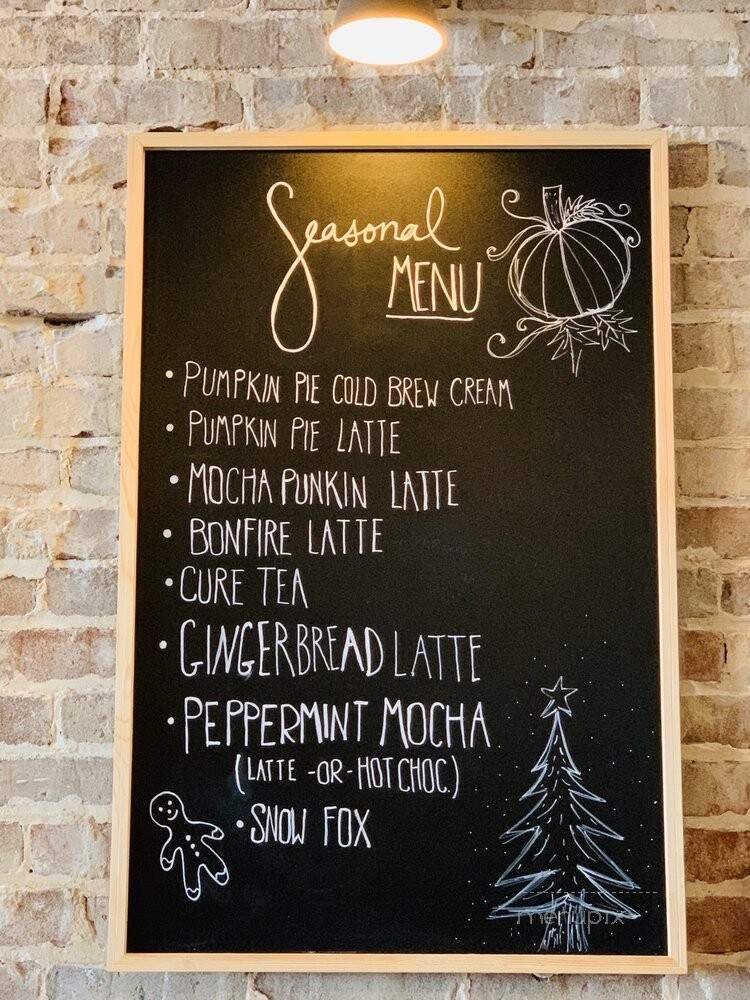 Seasonal
MENU
• PUMPKIN PIE COLD BREW CREAM
• PUMPKIN PIE LATTE
• MOCHA PUNKIN LATTE
• BONFIRE LATTE
• CURE TEA
• GINGERBREAD LATTE
• PEPPERMINT MOCHA
(LATTE -OR- HOT CHOC.)
• SNOW FOX
menupix